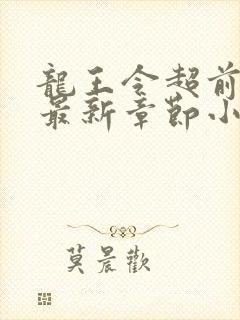 龍王令超前
最新章節小
莫晨歡